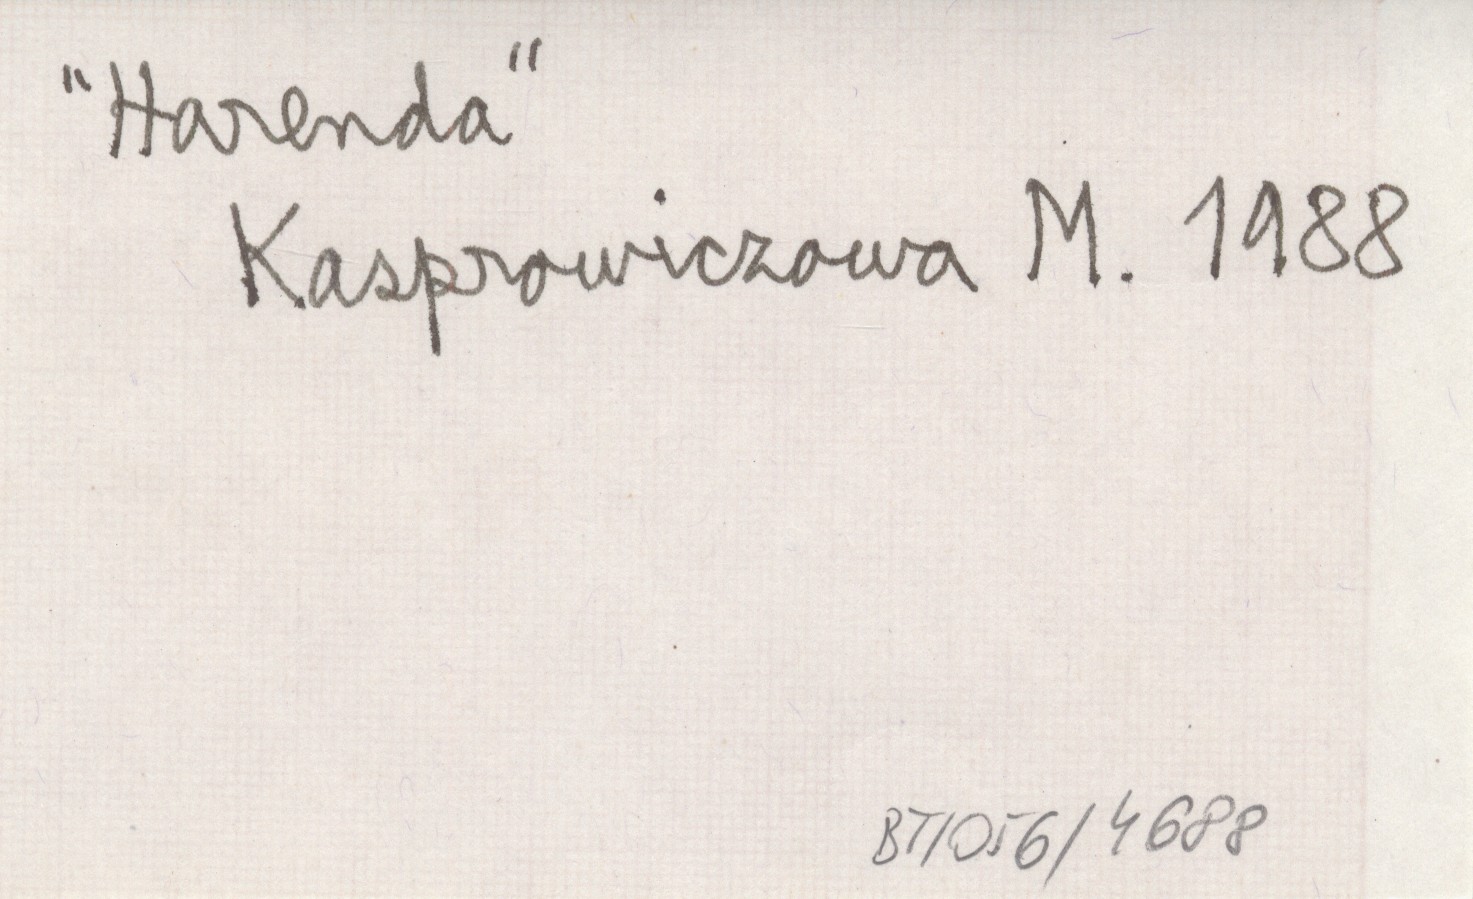 "Harenda"
Kasprowiczowa M. 1988
BT/056/4688